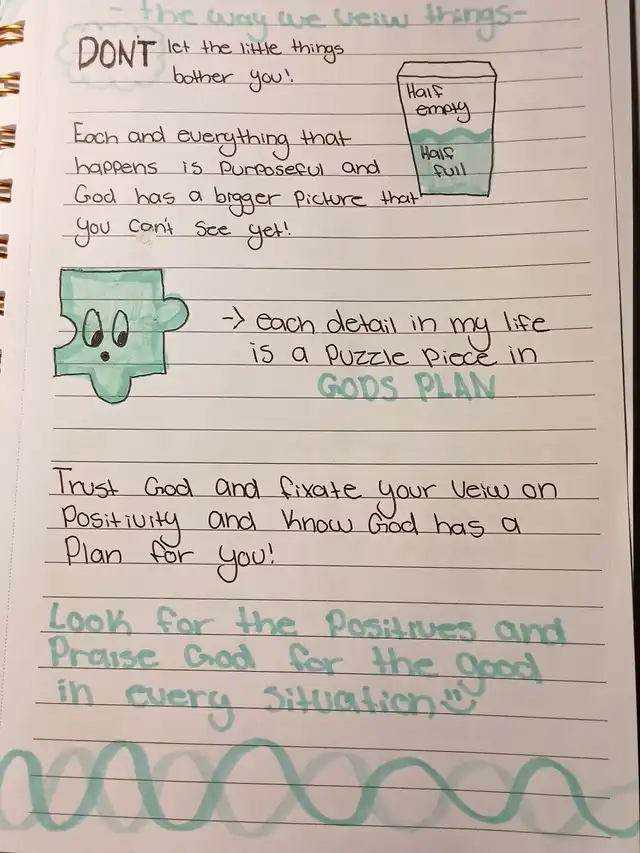 - the way we veiw things-
DON'T let the little things
bother you!
Half
empty
Half
full
Each and everything that
happens is purposeful and
God has a bigger picture that
you can't see yet!
-> each detail in my life
is a puzzle piece in
GODS PLAN
Trust God and fixate your veiw on
Positivity and know God has a
Plan for you!
Look for the Positives and
Praise God for the good
in every situation